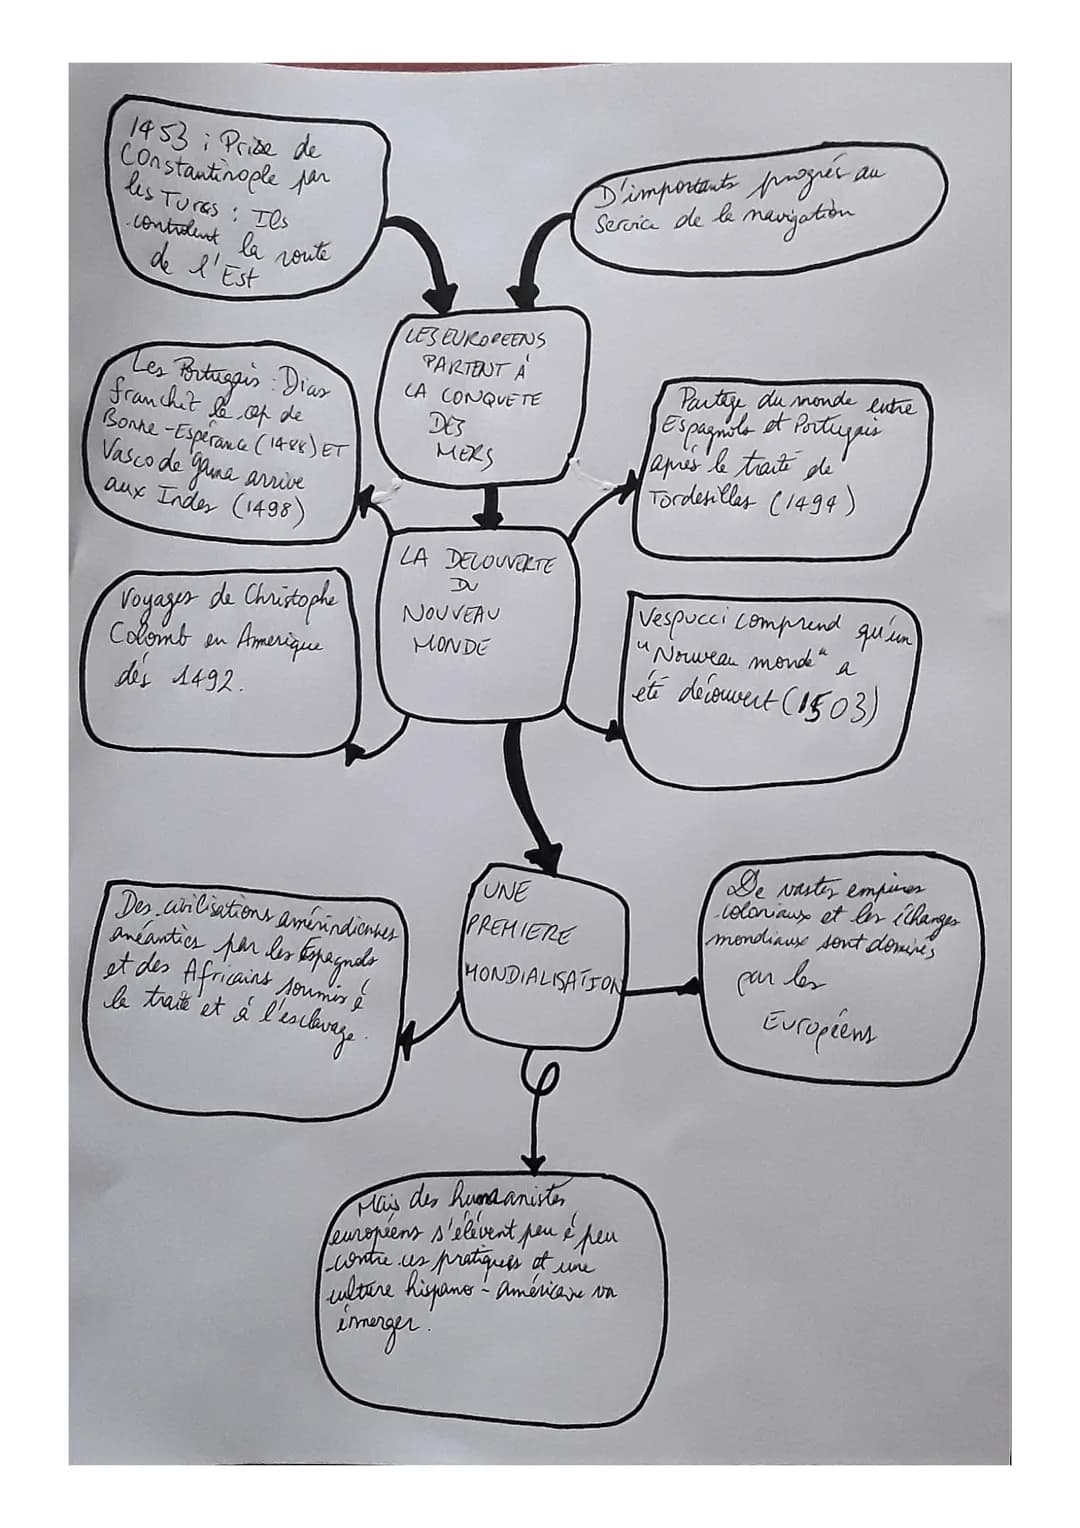 1453 ; Prise de
Constantinople par
les Turcs : Ils
contrôlent la route
de l'Est
D'importants progrés au
Service de la navigation
LES EUROPEENS
PARTENT À
LA CONQUETE
DES
MERS
Les Portugais : Dias
franchit le cap de
Bonne-Espérance (1488) ET
Vasco de gama arrive
aux Indes (1498)
Partage du monde entre
Espagnols et Portugais
aprés le traité de
Tordesillas (1494)
LA DECOUVERTE
DU
NOUVEAU
MONDE
Voyages de Christophe
Colomb en Amerique
dés 1492.
Vespucci comprend qu'un
"Nouveau monde" a
été découvert (1503)
UNE
PREMIERE
MONDIALISATION
Des civilisations amérindiennes
anéanties par les Espagnols
et des Africains soumis é
la traite et à l'esclavage.
De vastes empires
coloniaux et les échanges
mondiaux sont dominés
par les
Européens
Mais des humanistes
européens s'élévent peu é peu
contre ces pratiques et une
culture hispano-américaine va
émerger.